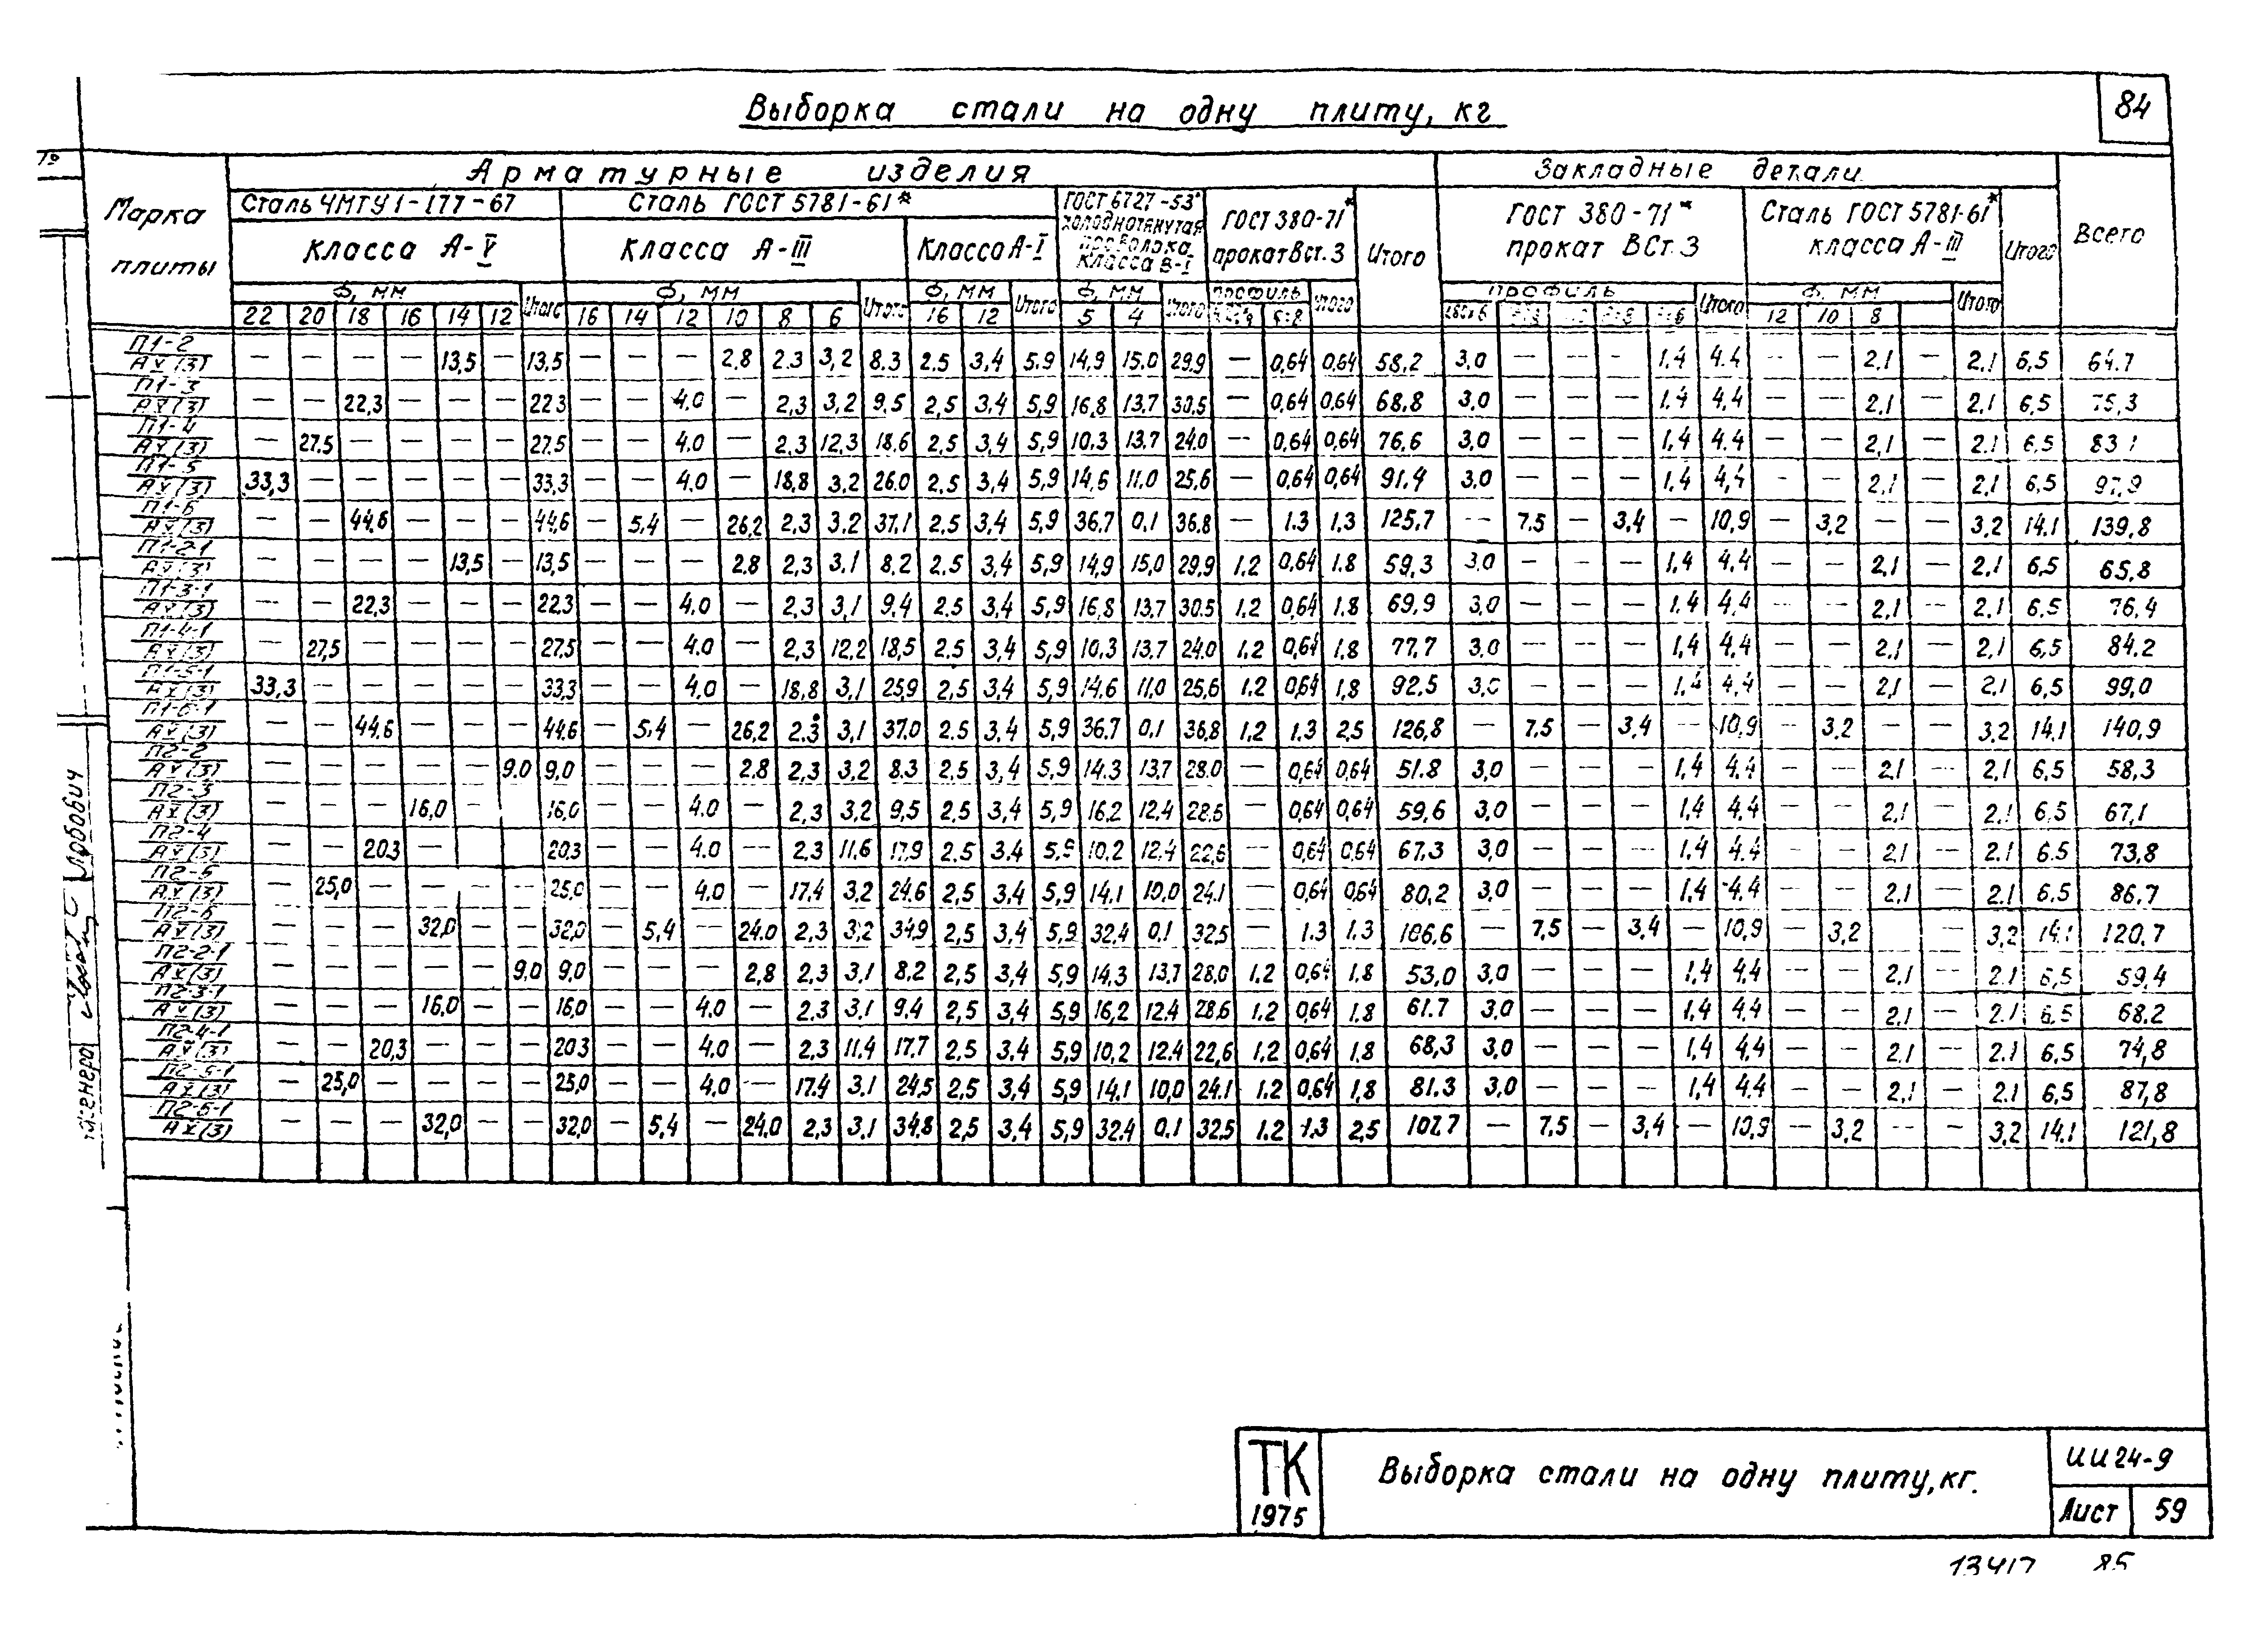 84
Выборка стали на одну плиту, кг
Марка плиты
Арматурные изделия
Закладные детали
Всего
Сталь ЧМТУ 1-177-67
Сталь ГОСТ 5781-61*
ГОСТ 6727-53* холоднотянутая проволока класса В-I
ГОСТ 380-71* прокат Вст.3
Итого
ГОСТ 380-71* прокат ВСт.3
Сталь ГОСТ 5781-61* класса А-III
Итого
класса А-V
класса А-III
Класса А-I
Ф, мм Итого Ф, мм Итого Ф, мм Итого Ф, мм Итого профиль Итого профиль Итого Ф, мм Итого
22 20 18 16 14 12 16 14 12 10 8 6 16 12 5 4 δ=8 12 10 8
П1-2 АV(3) — — — — 13,5 — 13,5 — — — 2.8 2.3 3,2 8.3 2.5 3,4 5,9 14,9 15.0 29.9 — 0,64 0,64 58,2 3,0 — — - 1,4 4.4 -- — 2.1 — 2.1 6,5 64.7
П1-3 АV(3) — — 22,3 — — — 22 3 — — 4.0 — 2,3 3,2 9,5 2,5 3,4 5,9 16,8 13.7 30,5 — 0,64 0,64 68.8 3,0 — — — 1,4 4,4 — — 2,1 — 2,1 6,5 75,3
П1-4 АV(3) — 27.5 — — — — 27.5 — — 4.0 — 2.3 12,3 18,6 2.5 3,4 5,9 10,3 13.7 24.0 -- 0,64 0,64 76,6 3,0 — — — 1,4 4.4 — — 2,1 — 2.1 6,5 83 1
П1-5 АV(3) 33,3 — — — — — 33,3 — — 4.0 — 18,8 3,2 26.0 2,5 3,4 5,9 14,6 11,0 25,6 — 0,64 0,64 91.4 3,0 — — — 1,4 4,4 - — 2,1 — 2,1 6,5 97,9
П1-6 АV(3) — — 44,6 — — — 44,6 — 5,4 — 26,2 2,3 3,2 37,1 2,5 3,4 5,9 36.7 0,1 36.8 — 1.3 1,3 125,7 -- 7.5 — 3,4 — 10,9 — 3,2 — — 3,2 14,1 139,8
П1-2-1 АV(3) — — — — 13,5 — 13,5 — — — 2.8 2,3 3.1 8,2 2.5 3,4 5,9 14,9 15,0 29,9 1.2 0,64 1.8 59,3 3,0 — — — 1,4 4,4 — — 2,1 — 2.1 6,5 65,8
П1-3-1 АV(3) — — 22,3 — — — 22,3 — — 4.0 — 2,3 3,1 9,4 2.5 3,4 5,9 16,8 13,7 30.5 1,2 0,64 1.8 69,9 3,0 — — — 1,4 4,4 — — 2,1 -- 2,1 6,5 76,4
П1-4-1 АV(3) — 27,5 — — — — 27,5 — — 4.0 — 2,3 12,2 18,5 2.5 3,4 5,9 10,3 13,7 24.0 1,2 0,64 1,8 77,7 3,0 — — — 1,4 4,4 — — 2,1 — 2,1 6,5 84.2
П1-5-1 АV(3) 33,3 — — — — — 33,3 — — 4.0 — 18,8 3,1 25,9 2,5 3,4 5,9 14,6 11,0 25,6 1,2 0,64 1,8 92.5 3,0 — — — 1,4 4,4 — — 2,1 — 2,1 6,5 99,0
П1-6-1 АV(3) — — 44,6 — — — 44.6 — 5,4 — 26,2 2,3 3,1 37.0 2.5 3,4 5,9 36.7 0,1 36,8 1,2 1.3 2,5 126,8 — 7,5 — 3,4 — 10,9 — 3,2 — — 3,2 14,1 140,9
П2-2 АV(3) — — — — — 9.0 9,0 — — — 2,8 2,3 3,2 8.3 2,5 3,4 5,9 14.3 13,7 28.0 — 0,64 0,64 51.8 3,0 — — — 1,4 4.4 — — 2,1 — 2,1 6.5 58,3
П2-3 АV(3) — — — 16,0 — — 16,0 — — 4.0 — 2,3 3,2 9,5 2,5 3,4 5,9 16,2 12,4 28,6 — 0,64 0,64 59,6 3,0 — — — 1,4 4,4 — — 2,1 — 2,1 6,5 67,1
П2-4 АV(3) — — 20.3 — — 20,3 — — 4.0 — 2.3 11,6 17,9 2,5 3,4 5,9 10,2 12,4 22,6 — 0,64 0,64 67.3 3,0 — — — 1,4 4.4 — — 2,1 — 2.1 6.5 73,8
П2-5 АV(3) — 25,0 — — — — 25,0 — — 4,0 — 17.4 3,2 24.6 2,5 3,4 5,9 14,1 10,0 24,1 — 0,64 0,64 80,2 3,0 — — — 1,4 4.4 — — 2,1 — 2.1 6.5 86,7
П2-6 АV(3) — — — 32,0 — — 32,0 — 5,4 — 24.0 2,3 3,2 34,9 2,5 3,4 5,9 32.4 0,1 32,5 — 1.3 1.3 106,6 — 7,5 — 3,4 — 10,9 — 3,2 3,2 14,1 120,7
П2-2-1 АV(3) — — — — — 9,0 9,0 — — — 2,8 2,3 3,1 8.2 2,5 3,4 5,9 14,3 13,7 28,0 1.2 0,64 1.8 53,0 3,0 — — — 1,4 4,4 — — 2,1 — 2.1 6,5 59,4
П2-3-1 АV(3) — — — 16,0 — — 16,0 — — 4.0 — 2,3 3,1 9,4 2,5 3,4 5,9 16,2 12.4 28,6 1.2 0,64 1.8 61.7 3,0 — — — 1,4 4,4 — — 2,1 — 2.1 6,5 68.2
П2-4-1 АV(3) — — 20,3 — — — 20.3 — — 4,0 — 2,3 11,4 17.7 2,5 3,4 5,9 10,2 12.4 22,6 1.2 0,64 1,8 68,3 3,0 — — — 1,4 4,4 — — 2,1 — 2.1 6.5 74,8
П2-5-1 АV(3) — 25,0 — — — — 25,0 — — 4,0 — 17.4 3.1 24,5 2,5 3,4 5,9 14,1 10,0 24.1 1.2 0,64 1,8 81.3 3,0 — — — 1,4 4.4 — — 2,1 — 2.1 6,5 87,8
П2-6-1 АV(3) — — — 32,0 — — 32,0 — 5,4 — 24.0 2,3 3,1 34.8 2,5 3,4 5,9 32.4 0,1 32,5 1.2 1.3 2,5 107.7 — 7,5 — 3,4 — 10,9 — 3,2 -- — 3,2 14.1 121,8
Лобович
ТК
1975
Выборка стали на одну плиту,кг.
ИИ24-9
Лист 59
13417 85